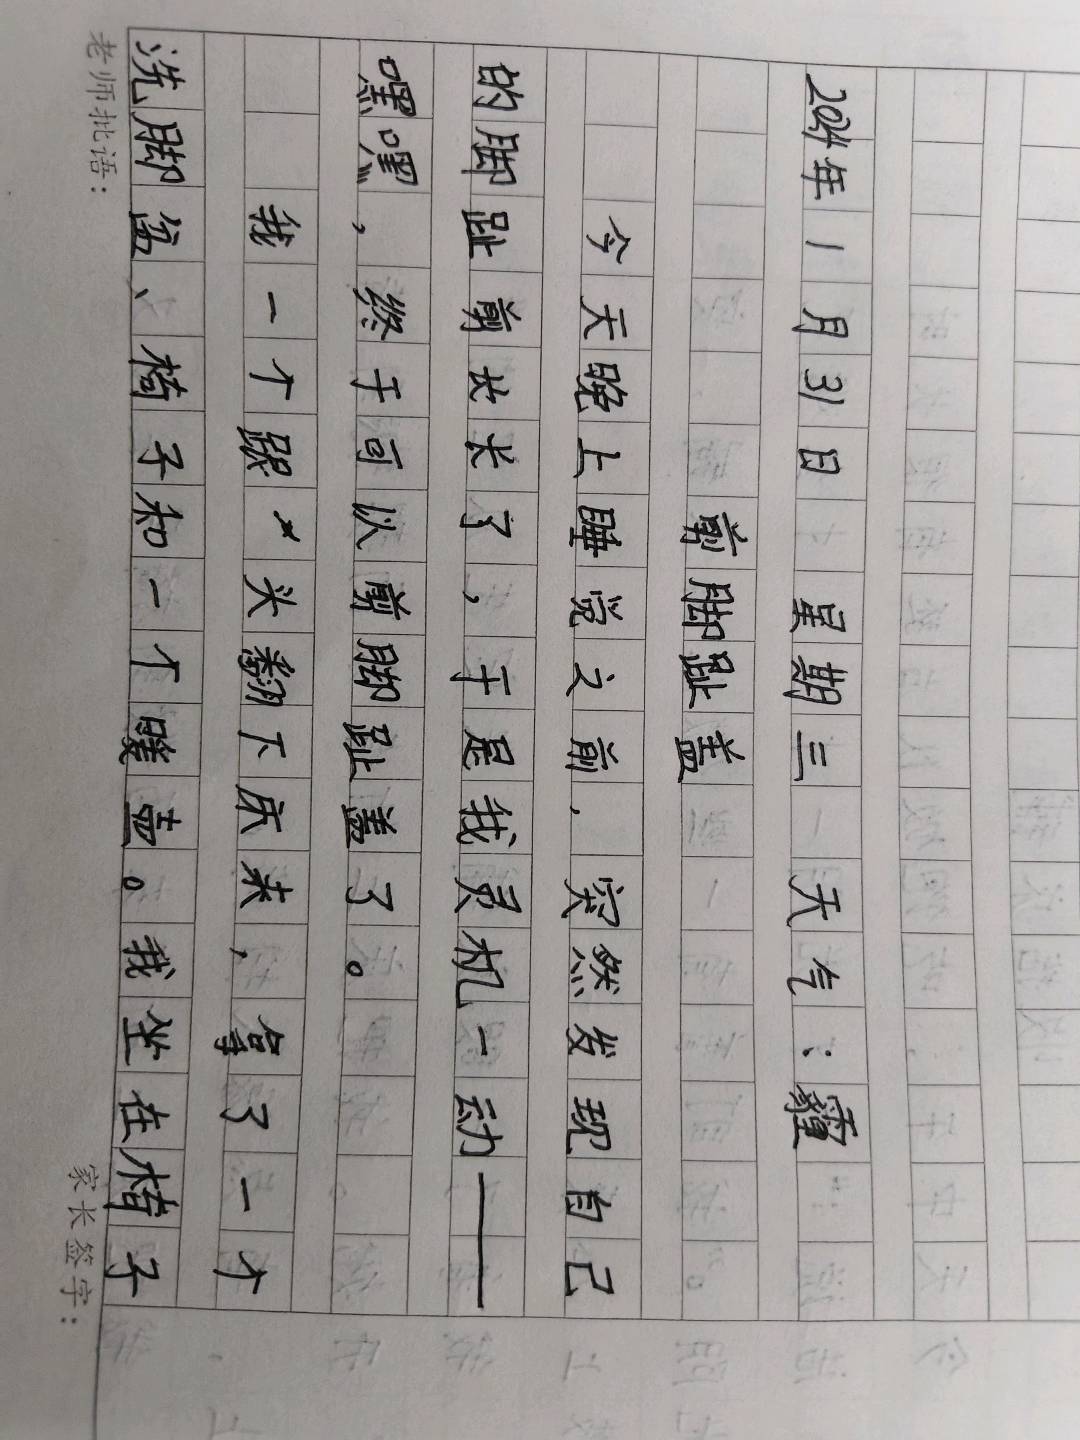 2024年1月31日 星期三 天气:霾
剪脚趾盖
今天晚上睡觉之前,突然发现自己
的脚趾剪长了,于是我灵机一动——
嘿嘿,终于可以剪脚趾盖了。
我一个跟头翻下床来,拿了一个
洗脚盆、椅子和一个暖壶。我坐在椅子
老师批语: 家长签字: